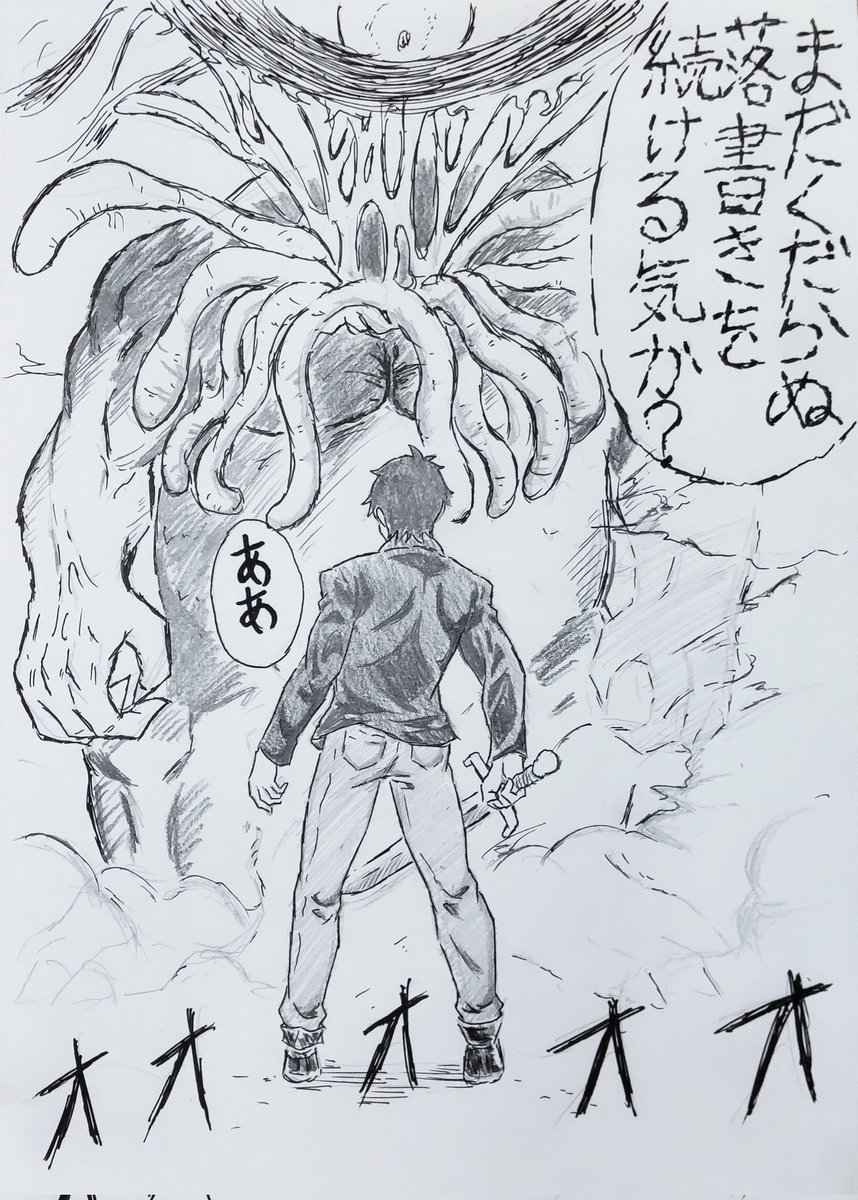 まだくだらぬ
落書きを
続ける気か?
ああ
オオオオオ